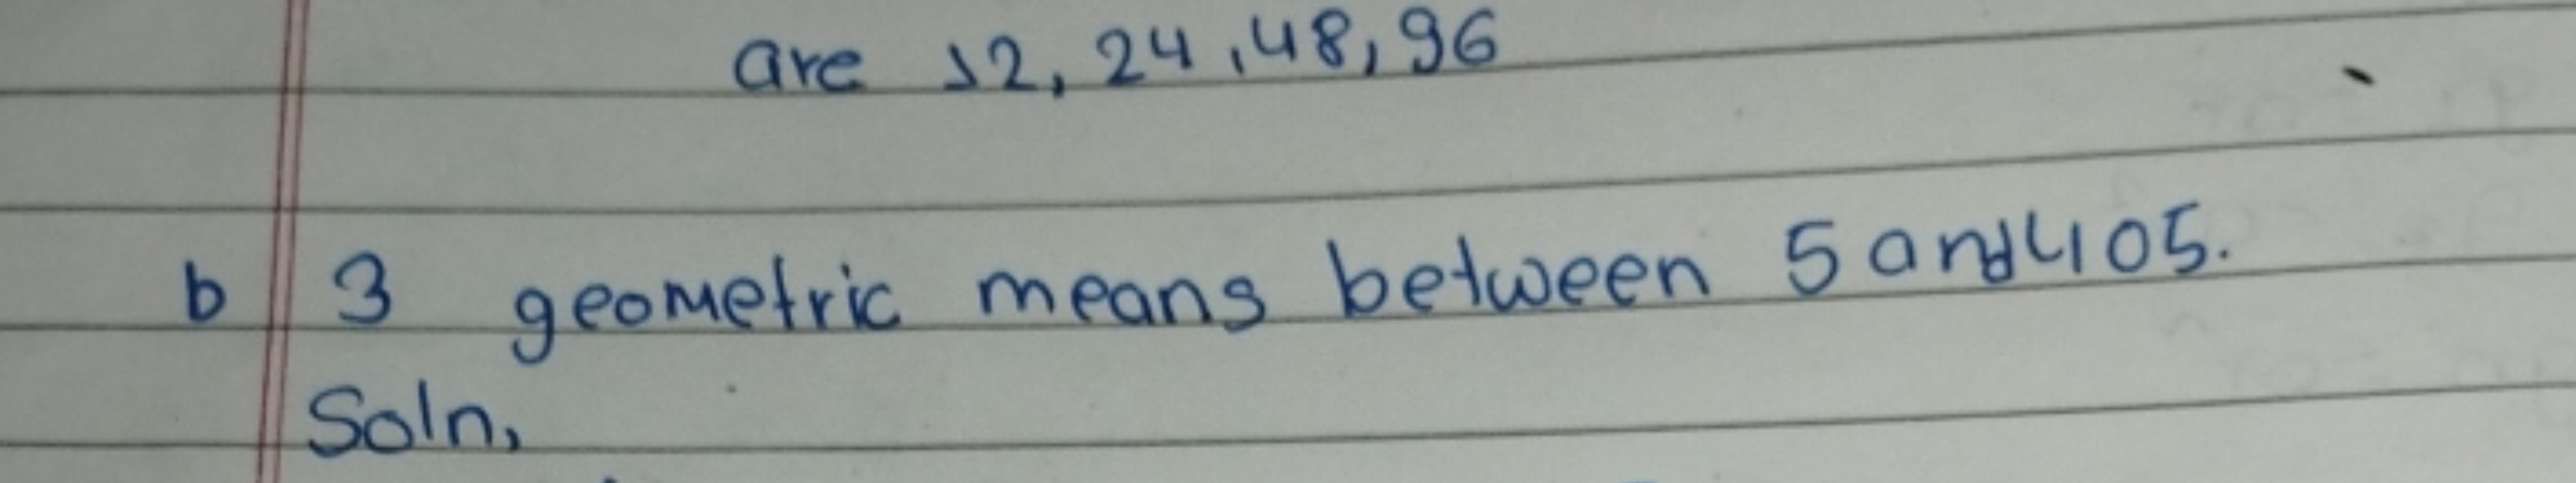 are 12, 24, 48, 96
b 3 geometric means between 5 and 405.
Soln,